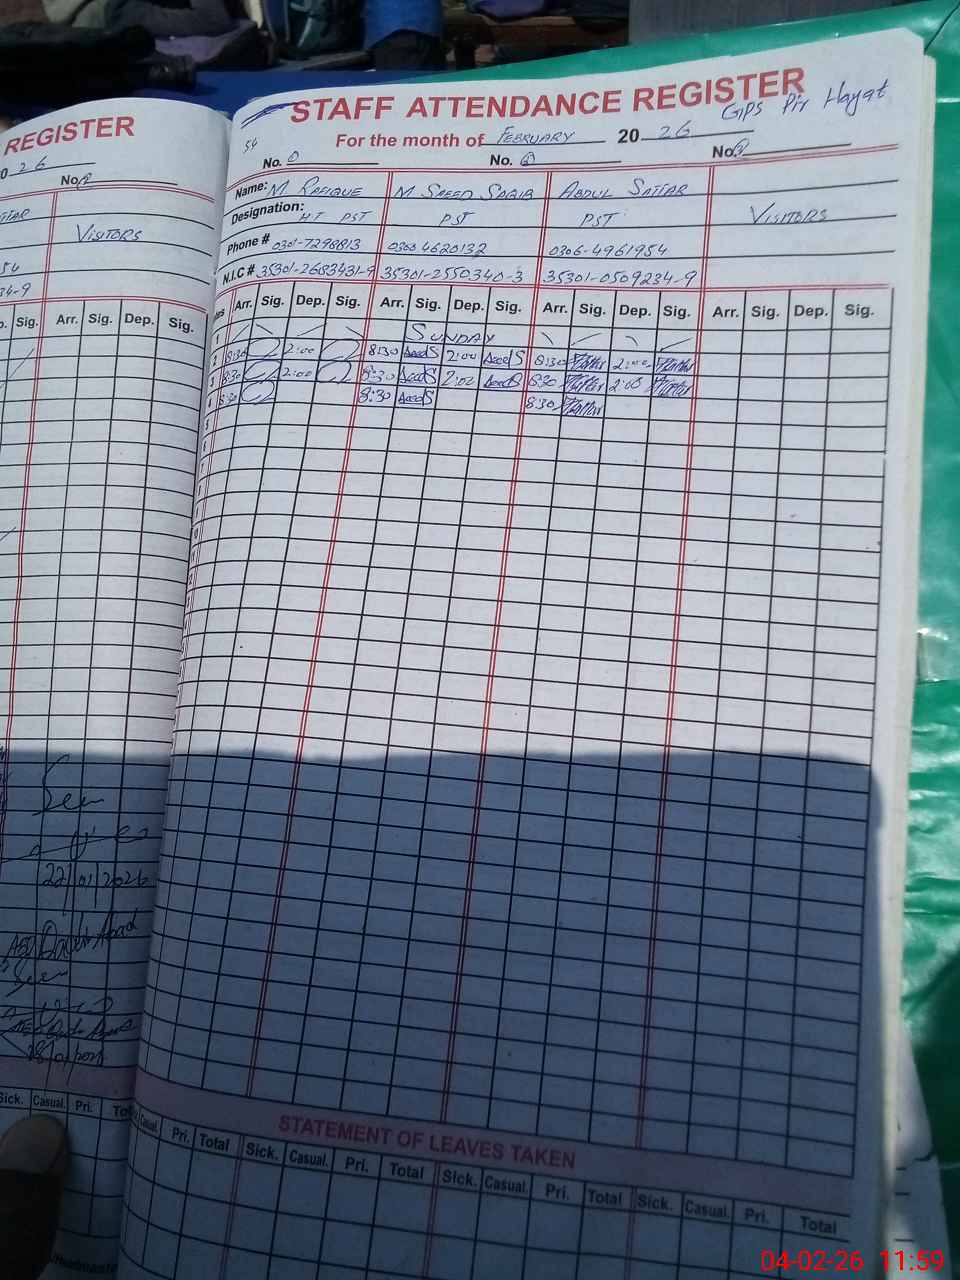 REGISTER
026
No.
VISITORS
54
34-9
Sig. Arr. Sig. Dep. Sig.
Seen
22/01/2026
Seen
Sick. Casual. Pri.
STAFF ATTENDANCE REGISTER
GIPS Pir Hayat
54
For the month of FEBRUARY 2026
No. No. No.
Name: M RAFIQUE M SAEED SABIR ABDUL SATTAR
Designation: HT PST PST PST VISITORS
Phone # 0301-7298813 0300 4620132 0306-4961954
N.I.C # 35301-2683431-9 35301-2550340-3 35301-0509234-9
Arr. Sig. Dep. Sig. Arr. Sig. Dep. Sig. Arr. Sig. Dep. Sig. Arr. Sig. Dep. Sig.
1 SUNDAY
2 8:30 2:00 8:30 2:00 8:30 2:00
3 8:30 2:00 8:30 2:00 8:30 2:00
4 8:30 8:30 8:30
5
6
7
STATEMENT OF LEAVES TAKEN
Casual. Pri. Total Sick. Casual. Pri. Total Sick. Casual. Pri. Total Sick. Casual. Pri. Total
04-02-26 11:59